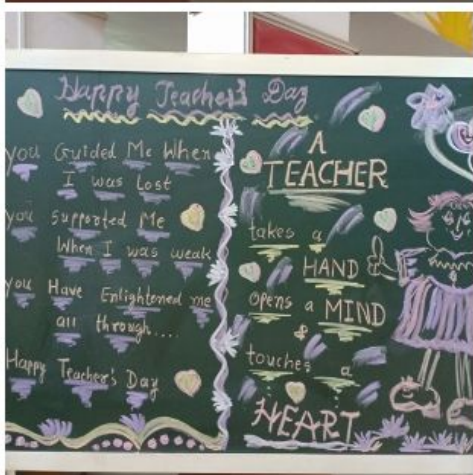 Happy Teacher's Day
you Guided Me When
I was Lost
you Supported Me
When I was weak
you Have Enlightened me
all through....
Happy Teacher's Day
A
TEACHER
takes a
HAND
opens a MIND
&
touches a
HEART